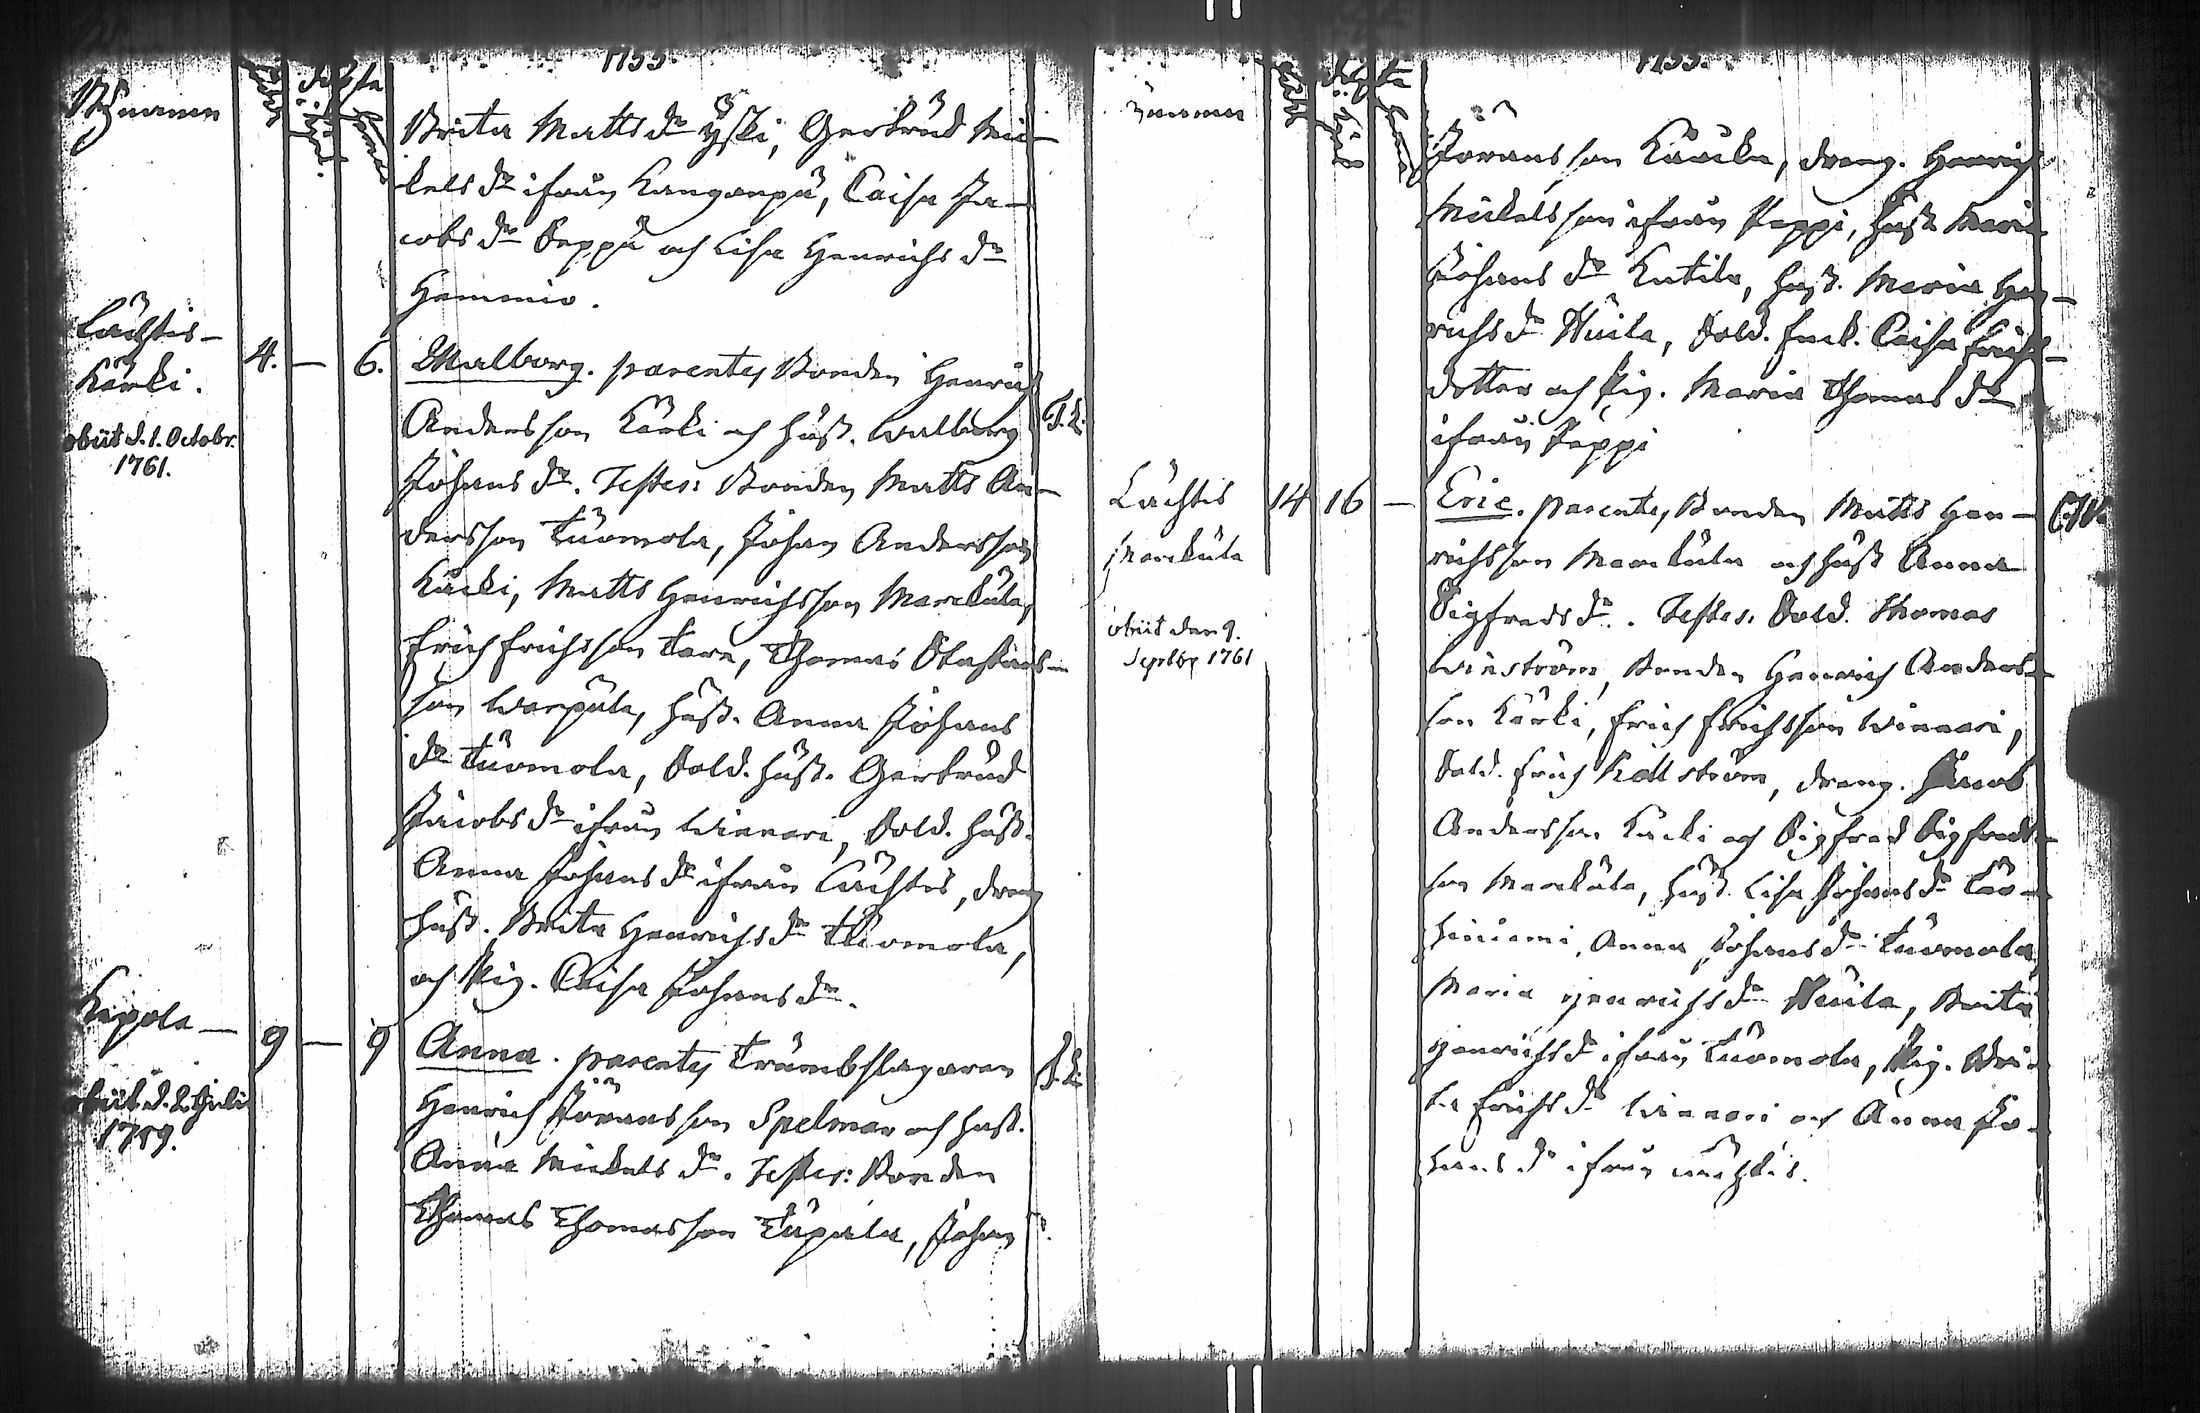 1755.
Brita Matts dr Yski, Gertrud Mi-
kels dr ifrån Kangarpä, Caisa Ja-
cobs dr Seppä och Lisa Henrichs dr
Hemmio.
Lachtis-
Kärki.
obiit d. 1. Octobr.
1761.
4. — 6.
Walborg. parentes Bonden Henrich
Andersson Kärki och Hust. Walborg
Johans dr. Testes: Bonden Matts An-
dersson Tuomola, Johan Andersson
Kärki, Matts Henrichsson Markula,
Erich Erichsson Tara, Thomas
son Warpula, Hust. Anna Johans
dr Tuomola, Sold. Hust. Gertrud
Jacobs dr ifrån Winnari, Sold. Hust.
Anna Johans dr ifrån Lachtis, dreng
Hust. Brita Henrichs dr Tuomola,
och Pig. Caisa Johans dr.
Kepola —
obiit d. 2 Julii
1759.
9 — 9
Anna. parentes Trumbslagaren
Henrich Göransson Spelman och Hust.
Anna Mickels dr. Testes: Bonden
Thomas Thomasson Tupala, Johan
1755.
Göransson Kärcke, dreng. Henrich
Mickelsson ifrån Peppi, Hust. Maria
Johans dr Kutila, Hust. Maria Hen-
richs dr Nuila, Sold. Enk. Caisa Erichs-
dotter och Pig. Maria Thomas dr
ifrån Peppi
Lachtis
Markula
obiit den 9.
Septbr 1761
14 16 —
Eric. parentes, Bonden Matts Hen-
richsson Markula och Hust Anna
Sigfreds dr. Testes. Sold. Thomas
Winström, Bonden Henrich Anders-
son Kärki, Erich Erichsson Winnari,
Sold. Erich Källström, dreng. Jacob
Andersson Kärki och Sigfred Sigfreds-
son Markula, Hust. Lisa Johans dr Läo-
hiniemi, Anna Johans dr Tuomola,
Maria Henrichs dr Nuila, Brita
Henrichs dr ifrån Tuomola, Pig. Bri-
ta Erichs dr Winnari och Anna Jo-
hans dr ifrån Lachtis.